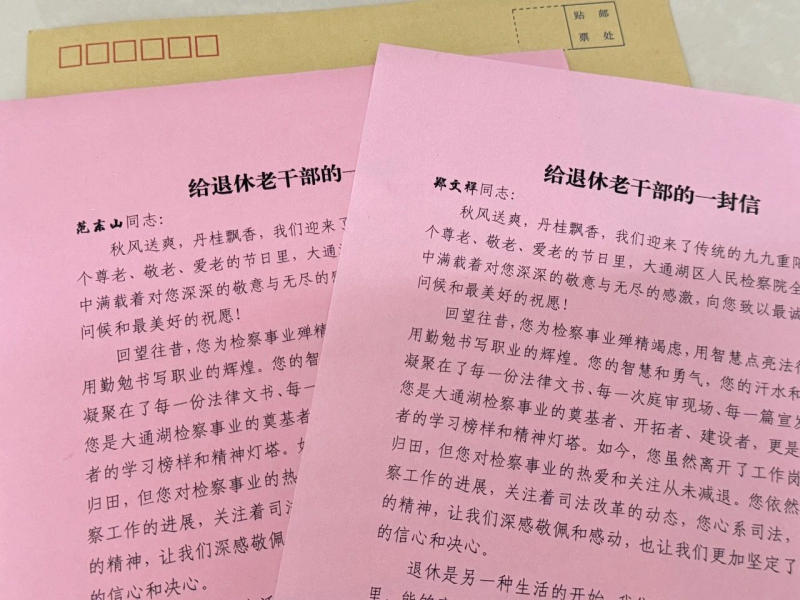 贴 邮
票 处
给退休老干部的一
范东山同志：
秋风送爽，丹桂飘香，我们迎来了
个尊老、敬老、爱老的节日里，大通湖
中满载着对您深深的敬意与无尽的感
问候和最美好的祝愿！
回望往昔，您为检察事业殚精
用勤勉书写职业的辉煌。您的智
凝聚在了每一份法律文书、每一
您是大通湖检察事业的奠基者、
者的学习榜样和精神灯塔。如
归田，但您对检察事业的热
察工作的进展，关注着司
的精神，让我们深感敬佩
的信心和决心。
给退休老干部的一封信
郑文祥同志：
秋风送爽，丹桂飘香，我们迎来了传统的九九重阳
个尊老、敬老、爱老的节日里，大通湖区人民检察院全
中满载着对您深深的敬意与无尽的感激，向您致以最诚
问候和最美好的祝愿！
回望往昔，您为检察事业殚精竭虑，用智慧点亮法
用勤勉书写职业的辉煌。您的智慧和勇气，您的汗水和
凝聚在了每一份法律文书、每一次庭审现场、每一篇宣
您是大通湖检察事业的奠基者、开拓者、建设者，更是
者的学习榜样和精神灯塔。如今，您虽然离开了工作岗
归田，但您对检察事业的热爱和关注从未减退。您依然
察工作的进展，关注着司法改革的动态，您心系司法，
的精神，让我们深感敬佩和感动，也让我们更加坚定了
的信心和决心。
退休是另一种生活的开始